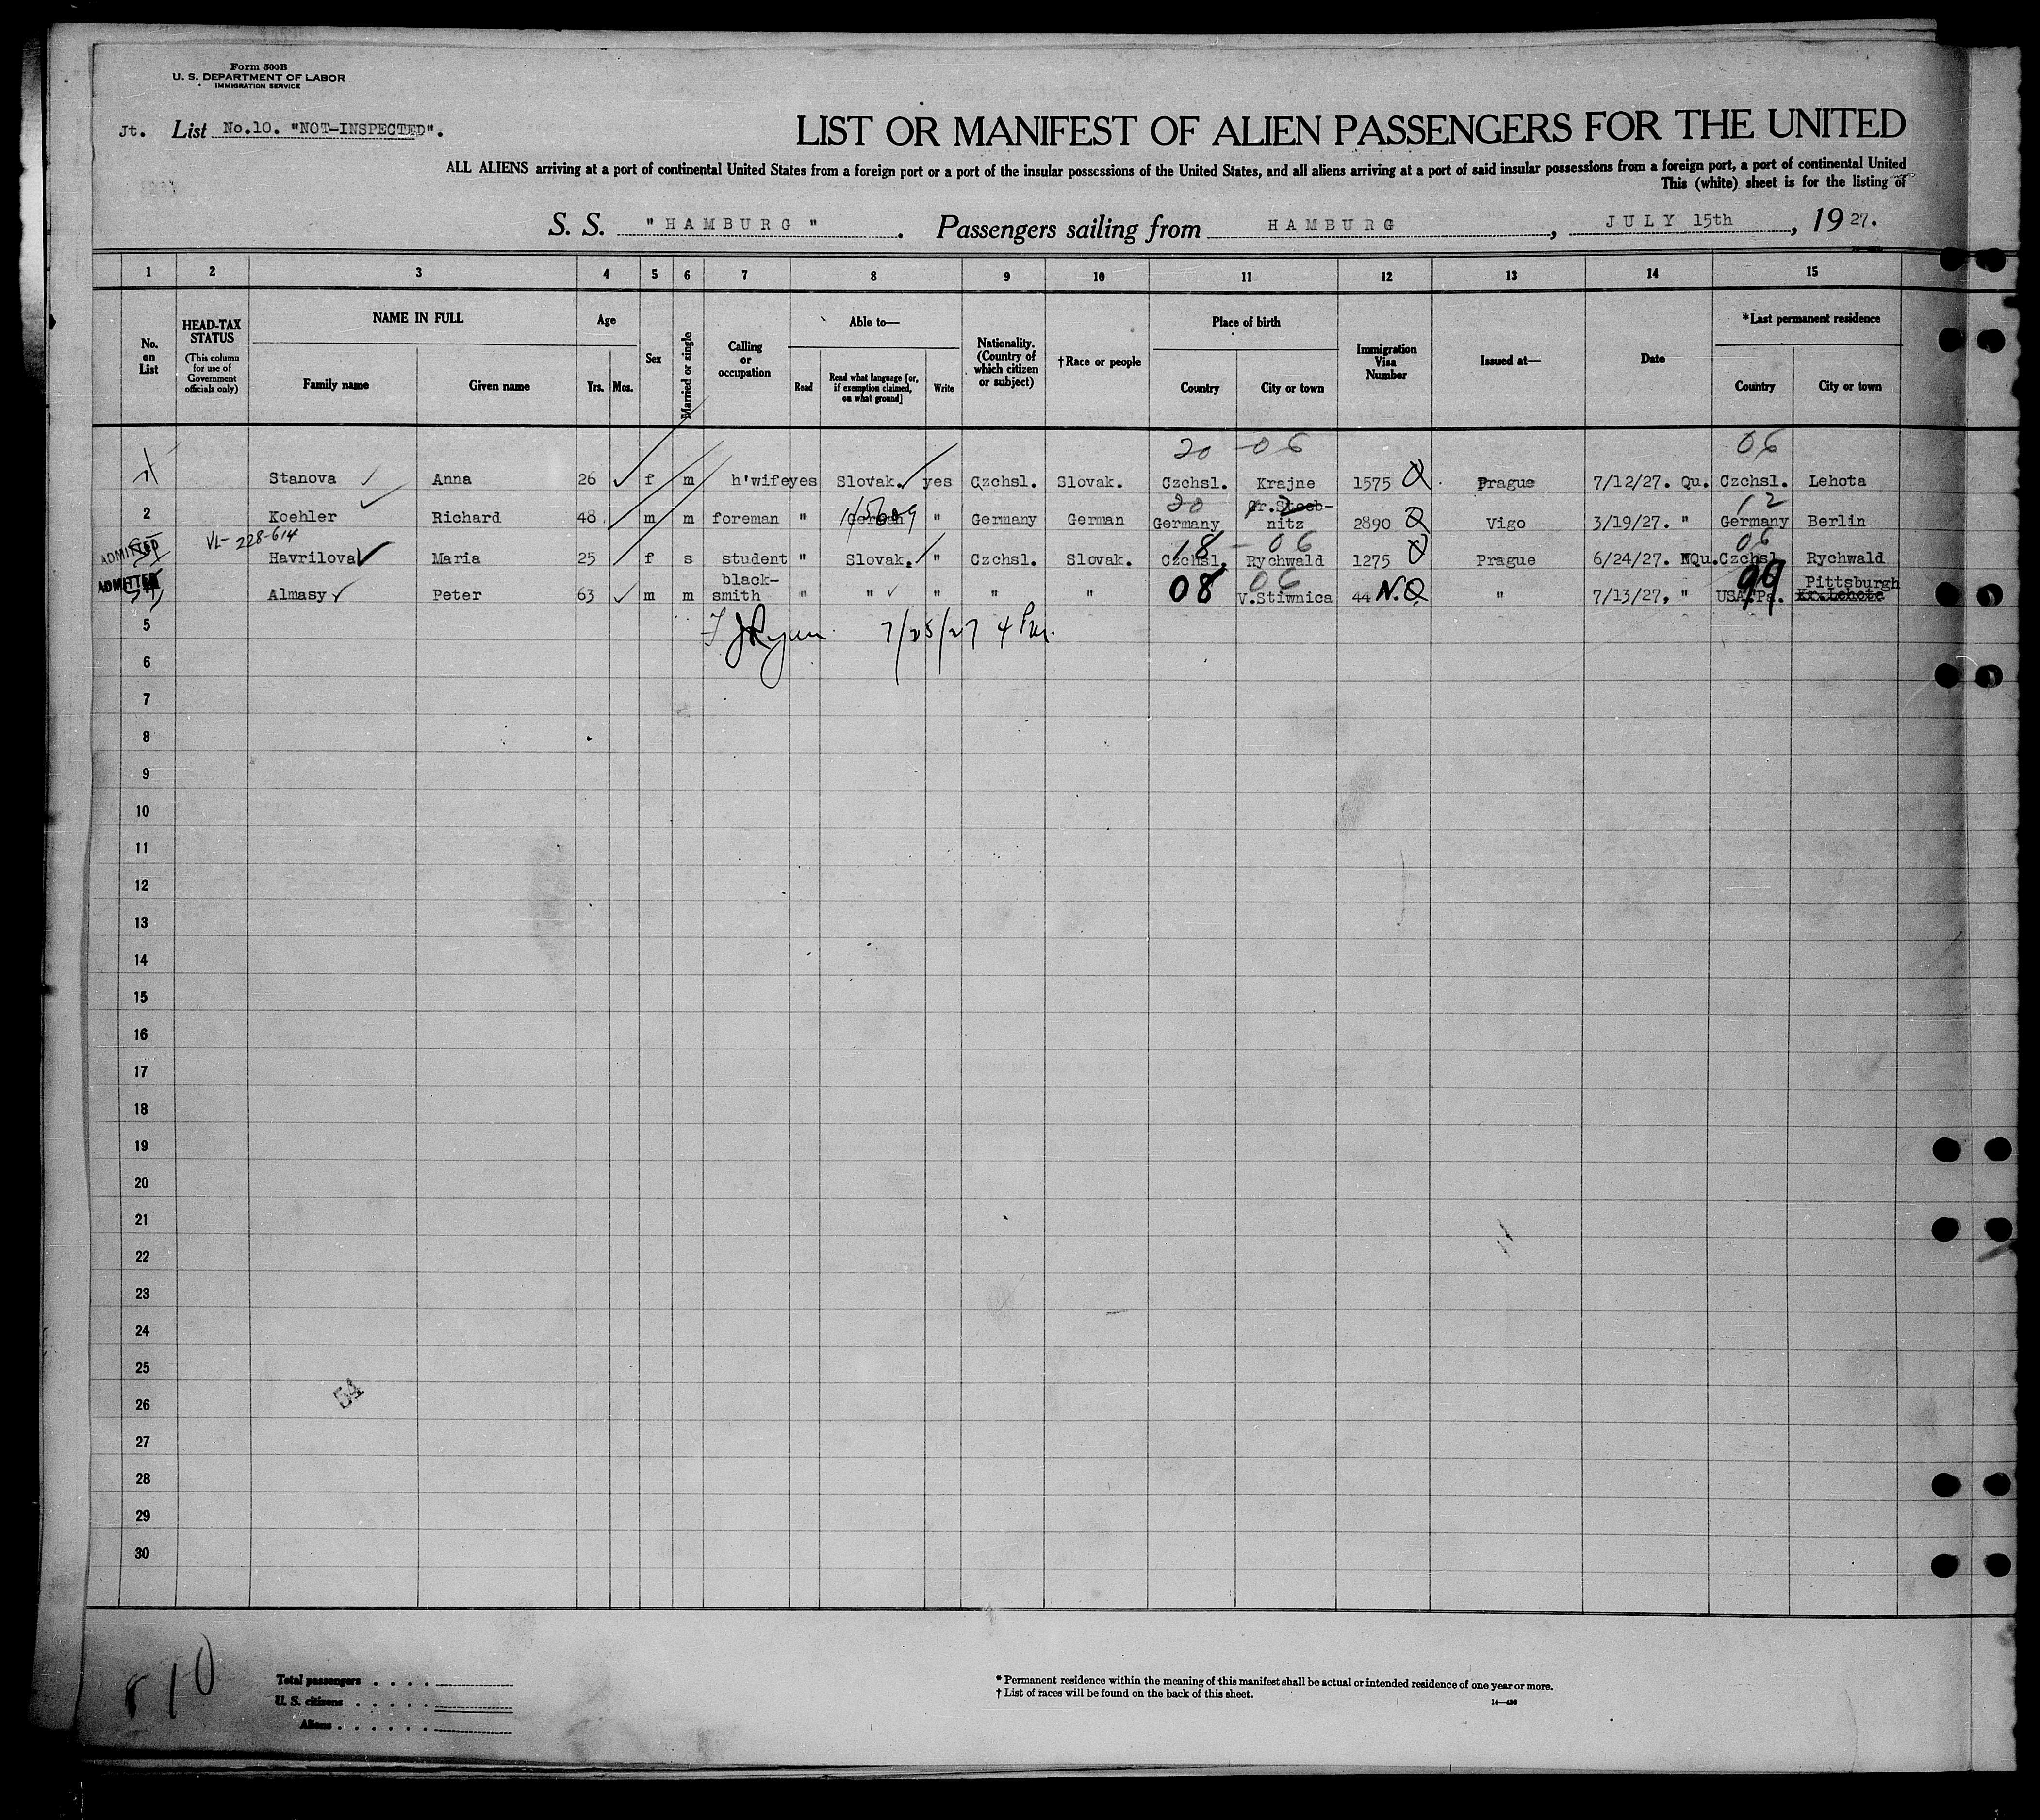 Form 500B
U. S. DEPARTMENT OF LABOR
IMMIGRATION SERVICE
Jt. List No.10. "NOT-INSPECTED".
LIST OR MANIFEST OF ALIEN PASSENGERS FOR THE UNITED
ALL ALIENS arriving at a port of continental United States from a foreign port or a port of the insular possessions of the United States, and all aliens arriving at a port of said insular possessions from a foreign port, a port of continental United
This (white) sheet is for the listing of
S. S. "HAMBURG". Passengers sailing from HAMBURG, JULY 15th, 1927.
1 2 3 4 5 6 7 8 9 10 11 12 13 14 15
No. on List
HEAD-TAX STATUS
(This column for use of Government officials only)
NAME IN FULL
Family name Given name
Age
Yrs. Mos.
Sex
Married or single
Calling or occupation
Able to—
Read
Read what language [or, if exemption claimed, on what ground]
Write
Nationality. (Country of which citizen or subject)
†Race or people
Place of birth
Country City or town
Immigration Visa Number
Issued at—
Date
*Last permanent residence
Country City or town
20 - 06 06
Stanova Anna 26 f m h'wife yes Slovak. yes Czchsl. Slovak. Czchsl. Krajne 1575 Q Prague 7/12/27. Qu. Czchsl. Lehota
20 12
2 Koehler Richard 48 m m foreman " German " Germany German Germany nitz 2890 Q Vigo 3/19/27. " Germany Berlin
VL-228-614
18 - 06 06
ADMITTED Havrilova Maria 25 f s student " Slovak. " Czchsl. Slovak. Czchsl. Rychwald 1275 Q Prague 6/24/27. NQu. Czchsl. Rychwald
ADMITTED Almasy Peter 63 m m black-smith " " " " " 08 06 V.Stiwnica 44 N.Q. " 7/13/27. " USA.Pa. 99 Pittsburgh Kr.Lehote
5 7/25/27 4 Pm.
6
7
8
9
10
11
12
13
14
15
16
17
18
19
20
21
22
23
24
25
26
54
27
28
29
30
10
Total passengers
U. S. citizens
Aliens
* Permanent residence within the meaning of this manifest shall be actual or intended residence of one year or more.
† List of races will be found on the back of this sheet.
14—430